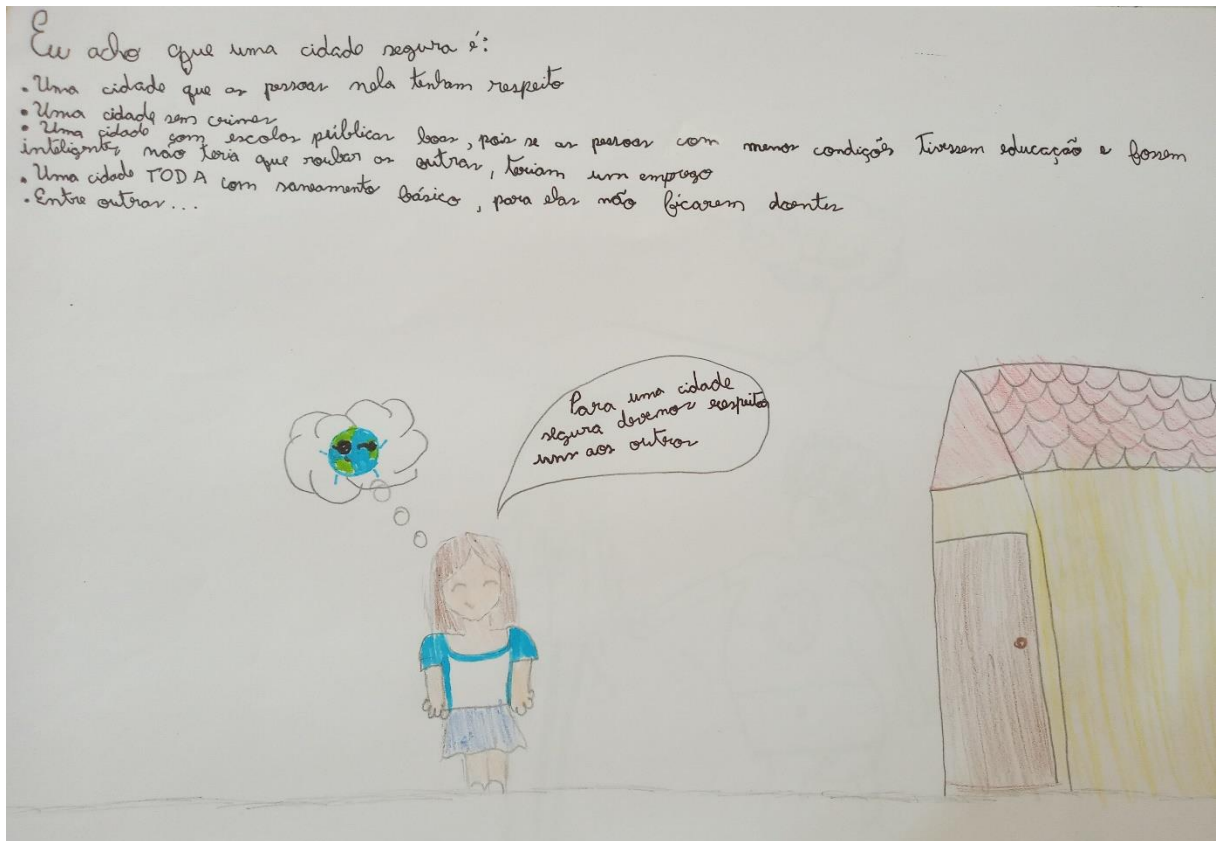 Eu acho que uma cidade segura é:
• Uma cidade que as pessoas nela tenham respeito
• Uma cidade sem crimes
• Uma cidade com escolas públicas boas, pois se as pessoas com menos condições tivessem educação e fossem
inteligentes não teria que roubar os outras, teriam um emprego
• Uma cidade TODA com saneamento básico, para elas não ficarem doentes
• Entre outras...
Para uma cidade
segura devemos respeito
uns aos outros